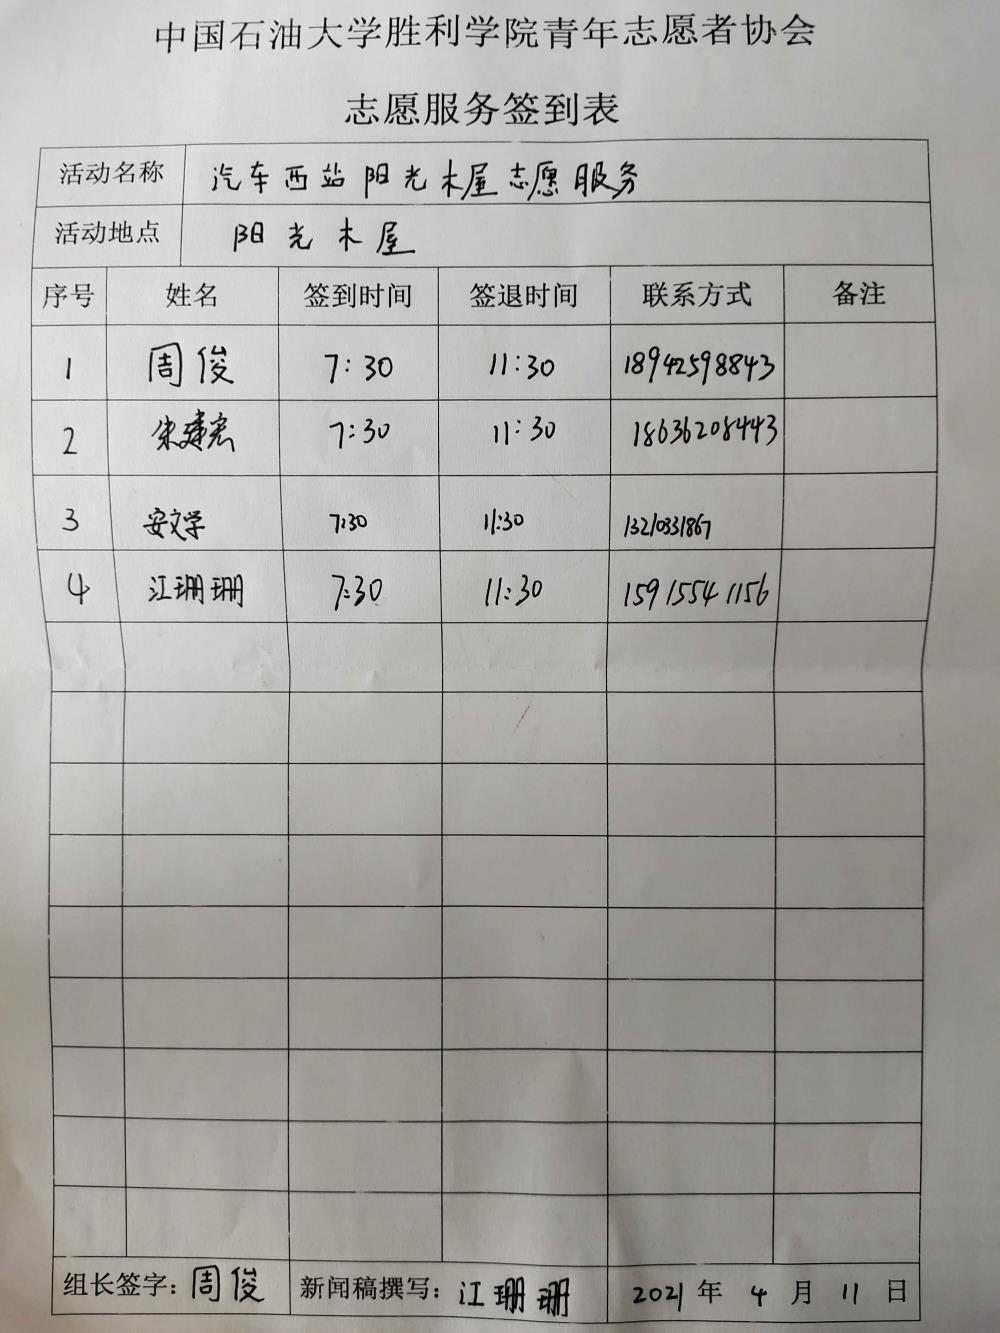 中国石油大学胜利学院青年志愿者协会
志愿服务签到表
活动名称 汽车西站阳光木屋志愿服务
活动地点 阳光木屋
序号 姓名 签到时间 签退时间 联系方式 备注
1 周俊 7:30 11:30 18942598843
2 朱建宏 7:30 11:30 18636208443
3 安文学 7:30 11:30 13210331867
4 江珊珊 7:30 11:30 15915541156
组长签字：周俊 新闻稿撰写：江珊珊 2021年4月11日